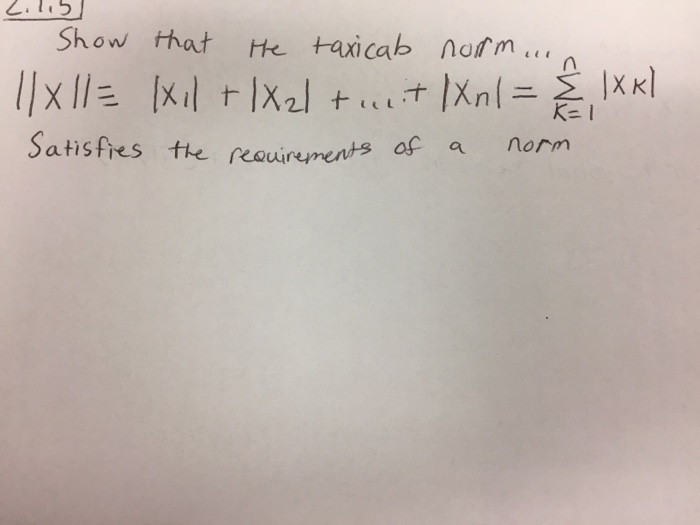 2.1.5)
Show that the taxicab norm...
||x||≡ |x₁| + |x₂| + ... + |xn| = n Σ K=1 |xK|
Satisfies the requirements of a norm